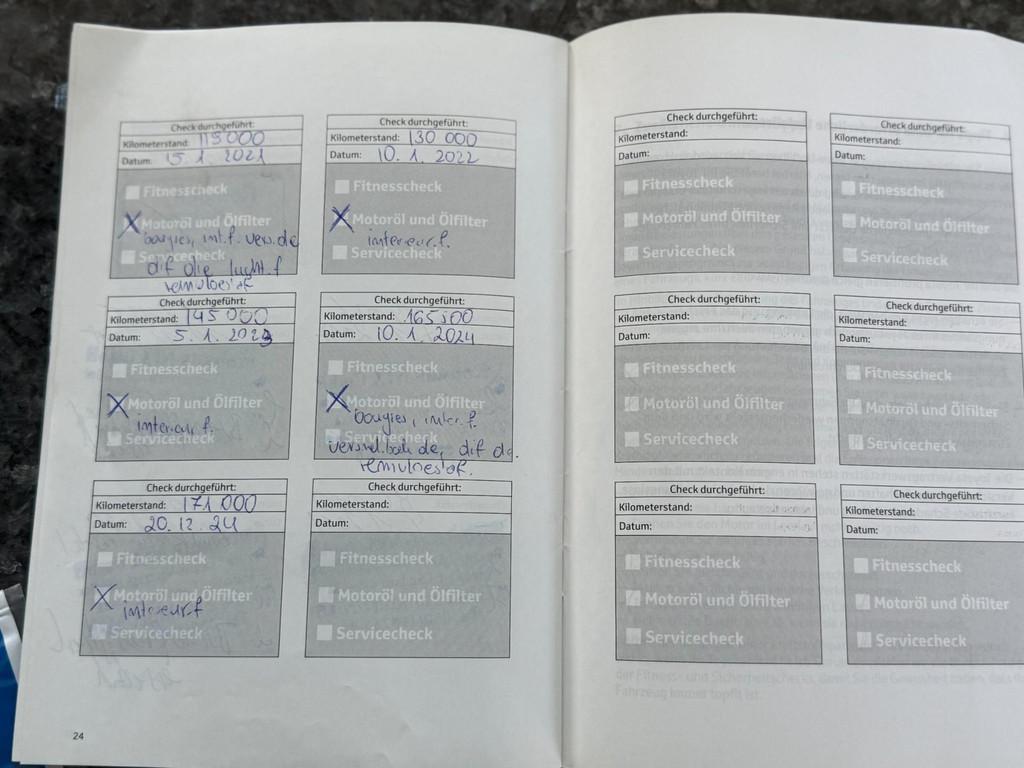 Check durchgeführt:
Kilometerstand: 115000
Datum: 15. 1. 2021
Fitnesscheck
Motoröl und Ölfilter
bougies, int. f. vers. de
Servicecheck
dif olie lucht. f
remvloestof
Check durchgeführt:
Kilometerstand: 130 000
Datum: 10. 1. 2022
Fitnesscheck
Motoröl und Ölfilter
interieur. f.
Servicecheck
Check durchgeführt:
Kilometerstand: 145 000
Datum: 5. 1. 2023
Fitnesscheck
Motoröl und Ölfilter
interieur f.
Servicecheck
Check durchgeführt:
Kilometerstand: 165500
Datum: 10. 1. 2024
Fitnesscheck
Motoröl und Ölfilter
bougies, inter. f.
Servicecheck
dif
remvloestof.
Check durchgeführt:
Kilometerstand: 171 000
Datum: 20. 12. 24
Fitnesscheck
Motoröl und Ölfilter
interieur. f
Servicecheck
Check durchgeführt:
Kilometerstand:
Datum:
Fitnesscheck
Motoröl und Ölfilter
Servicecheck
24
Check durchgeführt:
Kilometerstand:
Datum:
Fitnesscheck
Motoröl und Ölfilter
Servicecheck
Check durchgeführt:
Kilometerstand:
Datum:
Fitnesscheck
Motoröl und Ölfilter
Servicecheck
Check durchgeführt:
Kilometerstand:
Datum:
Fitnesscheck
Motoröl und Ölfilter
Servicecheck
Check durchgeführt:
Kilometerstand:
Datum:
Fitnesscheck
Motoröl und Ölfilter
Servicecheck
Check durchgeführt:
Kilometerstand:
Datum:
Fitnesscheck
Motoröl und Ölfilter
Servicecheck
Check durchgeführt:
Kilometerstand:
Datum:
Fitnesscheck
Motoröl und Ölfilter
Servicecheck